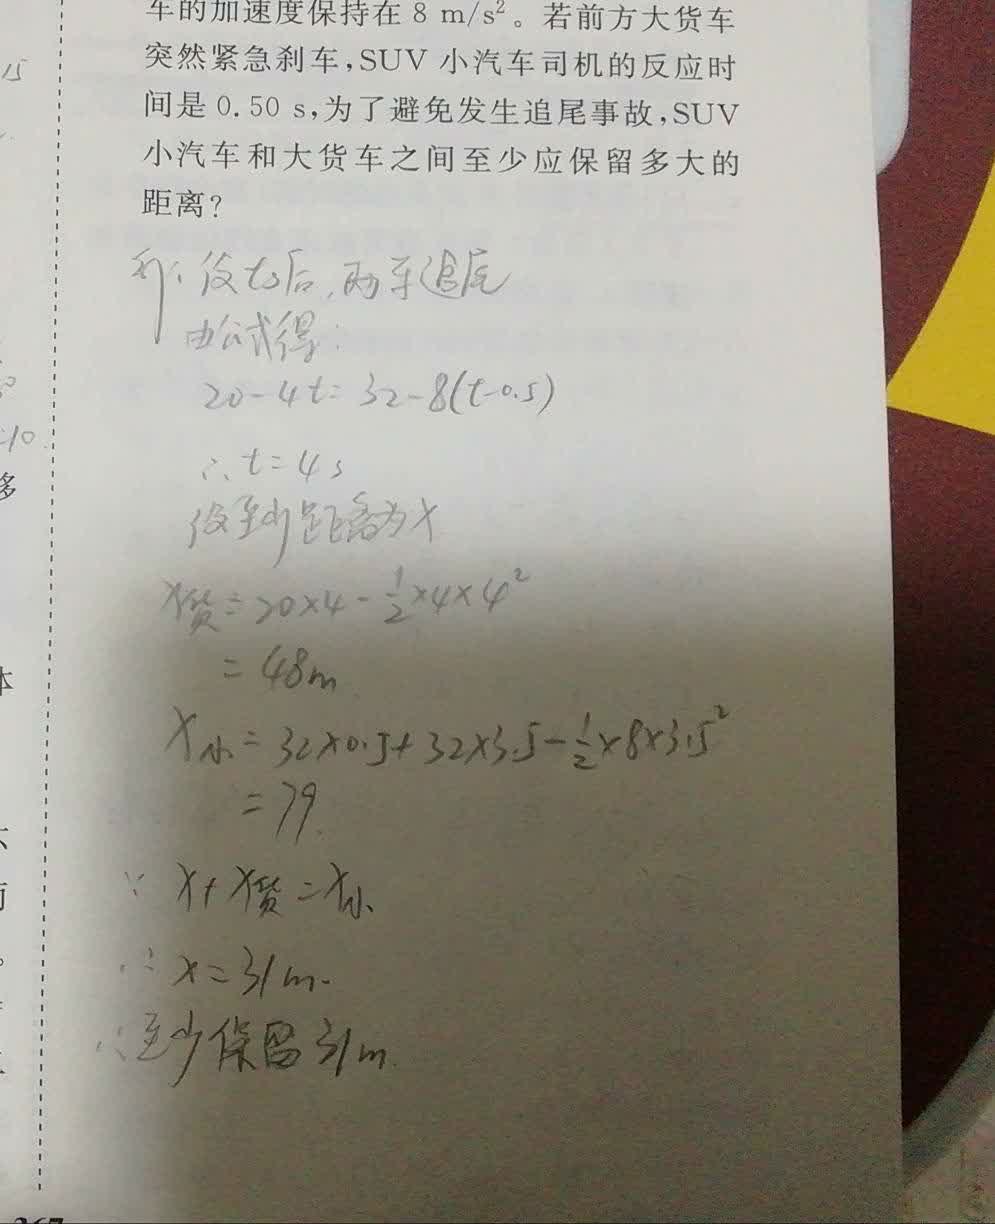 车的加速度保持在 8 m/s²。若前方大货车
突然紧急刹车,SUV 小汽车司机的反应时
间是 0.50 s,为了避免发生追尾事故,SUV
小汽车和大货车之间至少应保留多大的
距离?
解:设t s后,两车追尾
由公式得:
20-4t=32-8(t-0.5)
∴t=4s
设至少距离为x
x货=20×4-½×4×4²
=48m
x小=32×0.5+32×3.5-½×8×3.5²
=79
∵ x+x货=x小
∴ x=31m.
∴至少保留31m
15
10
移
体
267